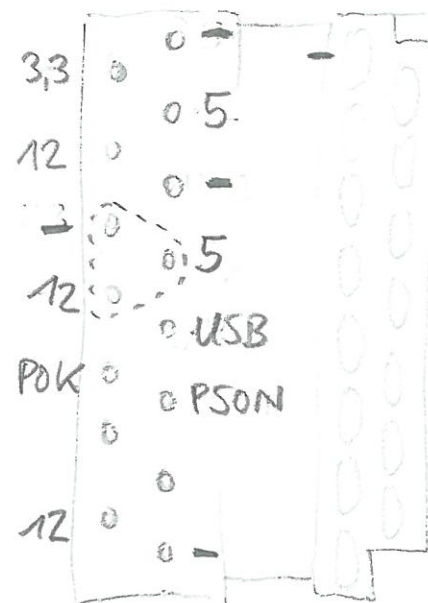 3,3
5
12
5
12
USB
POK
PSON
12